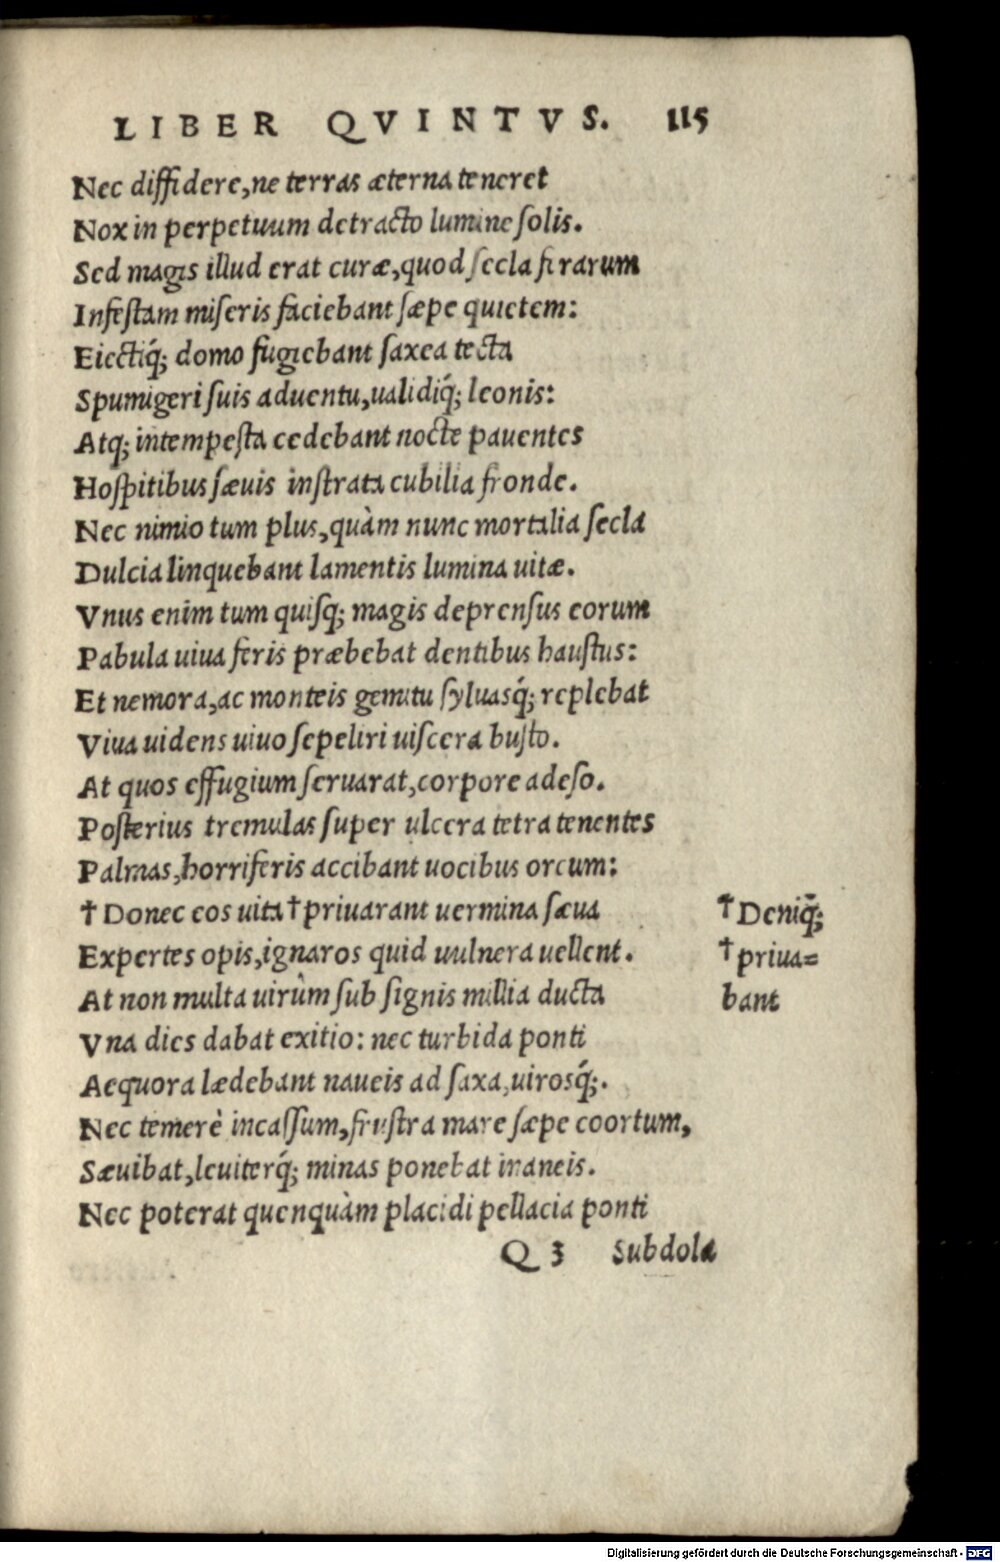 LIBER QVINTVS. 115
Nec diffidere, ne terras æterna teneret
Nox in perpetuum detracto lumine ſolis.
Sed magis illud erat curæ, quod ſecla ferarum
Infeſtam miſeris faciebant ſæpe quietem:
Eiectiq́; domo fugiebant ſaxea tecta
Spumigeri ſuis aduentu, ualidiq́; leonis:
Atq; intempeſta cedebant nocte pauentes
Hoſpitibus ſæuis inſtrata cubilia fronde.
Nec nimio tum plus, quàm nunc mortalia ſecla
Dulcia linquebant lamentis lumina uitæ.
Vnus enim tum quiſq; magis deprenſus eorum
Pabula uiua feris præbebat dentibus hauſtus:
Et nemora, ac monteis gemitu ſyluasq́; replebat
Viua uidens uiuo ſepeliri uiſcera buſto.
At quos effugium ſeruarat, corpore adeſo.
Poſterius tremulas ſuper ulcera tetra tenentes
Palmas, horriferis accibant uocibus orcum:
† Donec eos uita † priuarant uermina ſæua † Deniq̄;
Expertes opis, ignaros quid uulnera uellent. † priua=
At non multa uirùm ſub ſignis millia ducta bant
Vna dies dabat exitio: nec turbida ponti
Aequora lædebant naueis ad ſaxa, uirosq́;.
Nec temerè incaſſum, fruſtra mare ſæpe coortum,
Sæuibat, leuiterq́; minas ponebat inaneis.
Nec poterat quenquàm placidi pellacia ponti
Q 3 Subdola
Digitalisierung gefördert durch die Deutsche Forschungsgemeinschaft - DFG